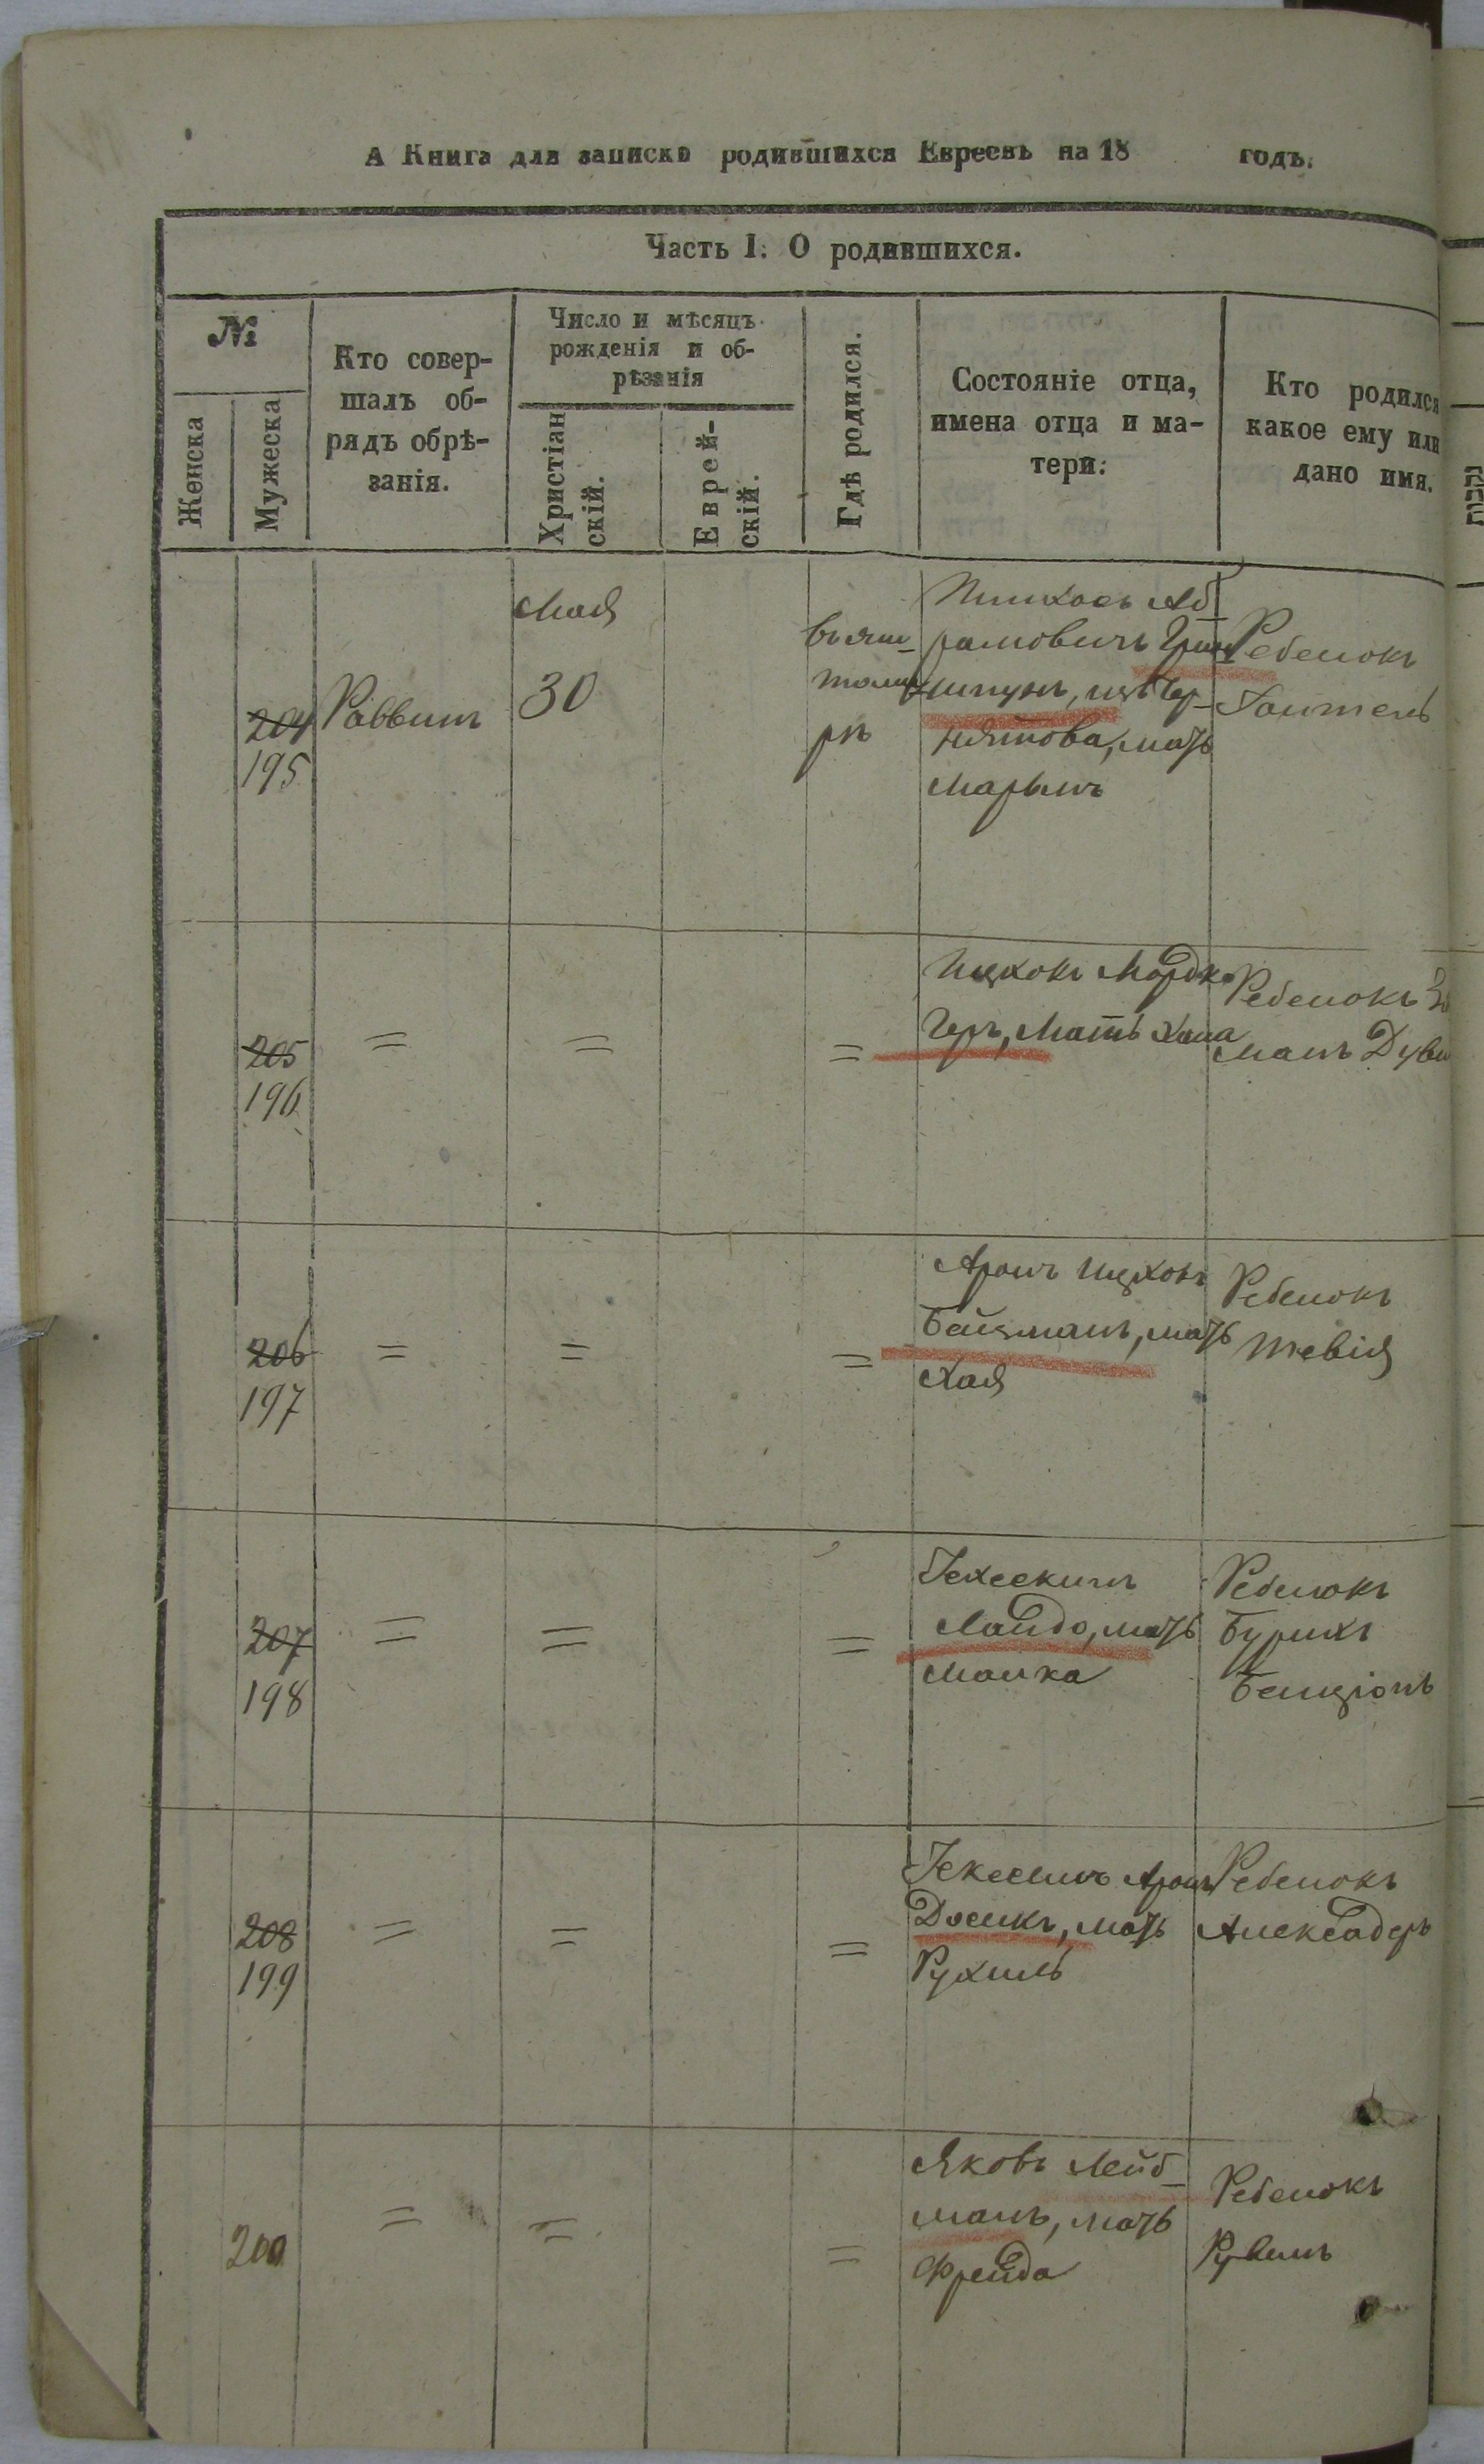 А Книга для записки родившихся Евреевъ на 18 годъ.
Часть I. О родившихся.
№
Женска
Мужеска
Кто совер-
шалъ об-
рядъ обрѣ-
занія.
Число и мѣсяцъ
рожденія и об-
рѣзанія
Христіан
скій.
Еврей-
скій.
Гдѣ родился.
Состояніе отца,
имена отца и ма-
тери.
Кто родился
какое ему или
дано имя.
204
195
Раввинъ
Мая
30
въ жи-
томи
рѣ
Пинхосъ Аб-
рамовичъ Грин
шпунъ, изъ Чер-
няхова, мать
Марьямъ
Ребенокъ
205
196
=
=
=
Ицхокъ Мордко
Геръ, Мать Хана
Ребенокъ З
манъ Дуви
206
197
=
=
=
Аронъ Ицхокъ
Бейзманъ, мать
Хая
Ребенокъ
Тевія
207
198
=
=
=
Іехескиль
Ландо, мать
Малка
Ребенокъ
Бурихъ
Бенціонъ
208
199
=
=
=
Аронъ
мать
Рухиль
Ребенокъ
Алексадеръ
200
=
=
=
Яковъ Лейб-
манъ, мать
Фрейда
Ребенокъ
Рувенъ